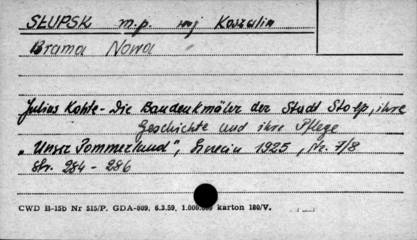 SŁUPSK m.p. woj Koszalin
Brama Nowa
Julius Kohte - Die Baudenkmäler der Stadt Stolp, ihre
Geschichte und ihre Pflege
„Unser Pommerland", 1925, Nr. 7/8
Str. 284 - 286
CWD B-15b Nr 515/P. GDA-809. 6.3.59, 1.000.000 karton 180/V.